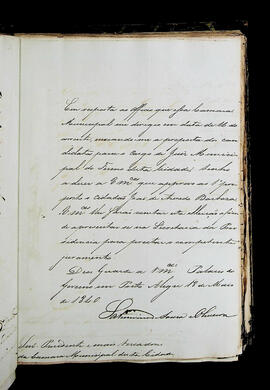 Em resposta ao Officio que essa Camara
Municipal me dirigio em data de 16 do
corrente, enviando-me a proposta de can
didatos para o cargo de Juiz Munici
pal do Termo desta Cidade, tenho
a dizer a V.mces que approvo ao 1º pro
posto o cidadão José de Azevedo Barbosa
V.mces lhe farão constar esta afim
de apresentar-se na Secretaria da Pre
sidencia para prestar o competente
juramento.
Deos Guarde a V.mces Palacio do
Governo em Porto Alegre 18 de Maio
de 1840
Saturnino de Souza e Oliveira
Snrs. Presidente e mais Vereadores
da Camara Municipal desta Cidade.